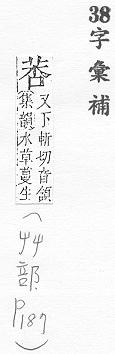 38字彙補
又下斬切音頷
集韻水草蔓生
(艸部 P187)